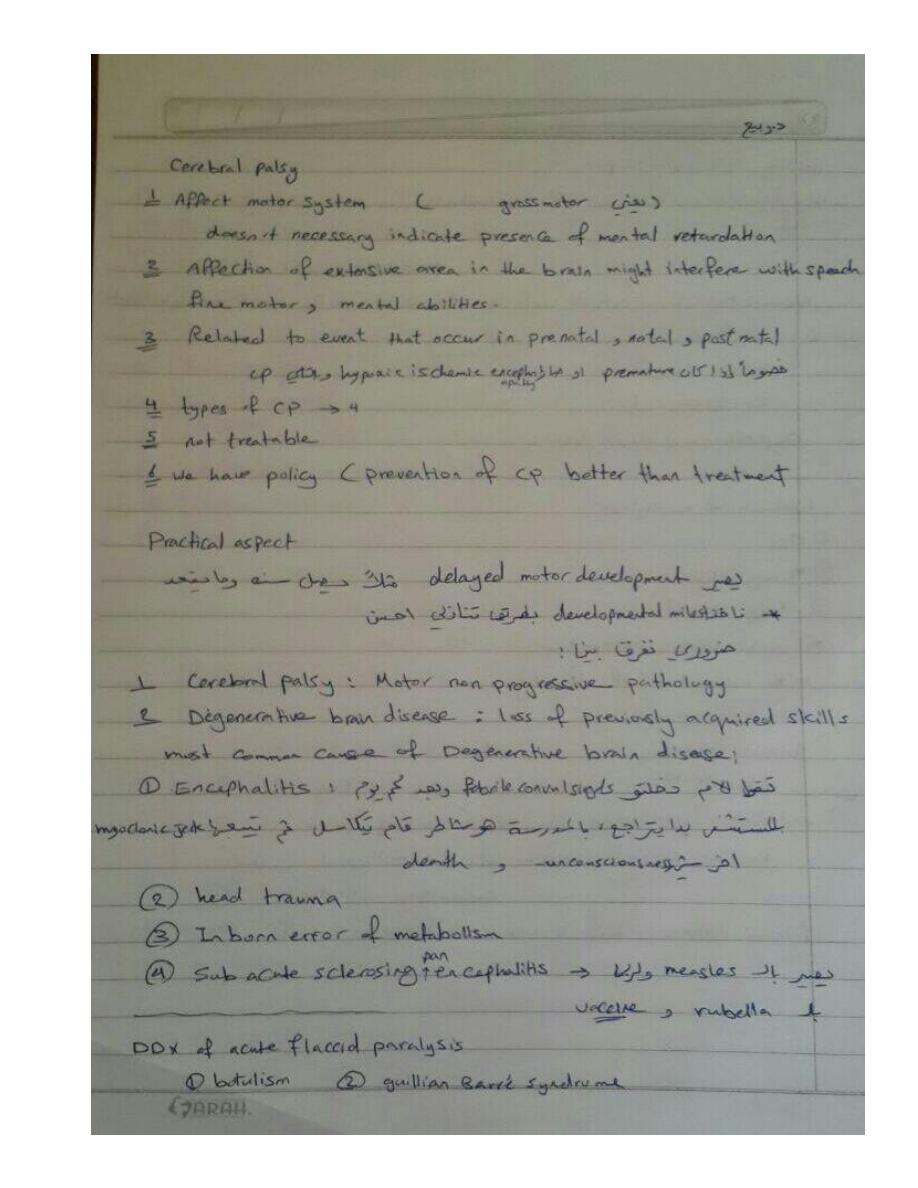 د. ربيع
Cerebral palsy
1 Affect motor system ( يعني gross motor )
doesn't necessary indicate presence of mental retardation
2 Affection of extensive area in the brain might interfere with speech
fine motor, mental abilities.
3 Related to event that occur in prenatal, natal, post natal
خصوصاً إذا كان premature او hypoxic ischemic encephalopathy CP
4 types of CP → 4
5 not treatable
6 we have policy ( prevention of CP better than treatment
Practical aspect
يصير delayed motor development مثلاً يصل سنه وما يقعد
* ناخذ developmental milestones بطريقة تنازلي احسن
ضروري نفرق بين :
1 Cerebral palsy : Motor non progressive pathology
2 Degenerative brain disease : loss of previously acquired skills
most common cause of Degenerative brain disease;
① Encephalitis : الام دخلتو febrile convulsions وبعد كم يوم
المستشفى بدا يتراجع، بالمدرسة هو شاطر قام يتكاسل ثم myoclonic jerk
اخر شي unconsciousness و death
② head trauma
③ Inborn error of metabolism
④ Sub acute sclerosing pan encephalitis → يصير بال measles
rubella و vaccine
DDX of acute flaccid paralysis
① botulism ② guillian Barré syndrome
SARAH.